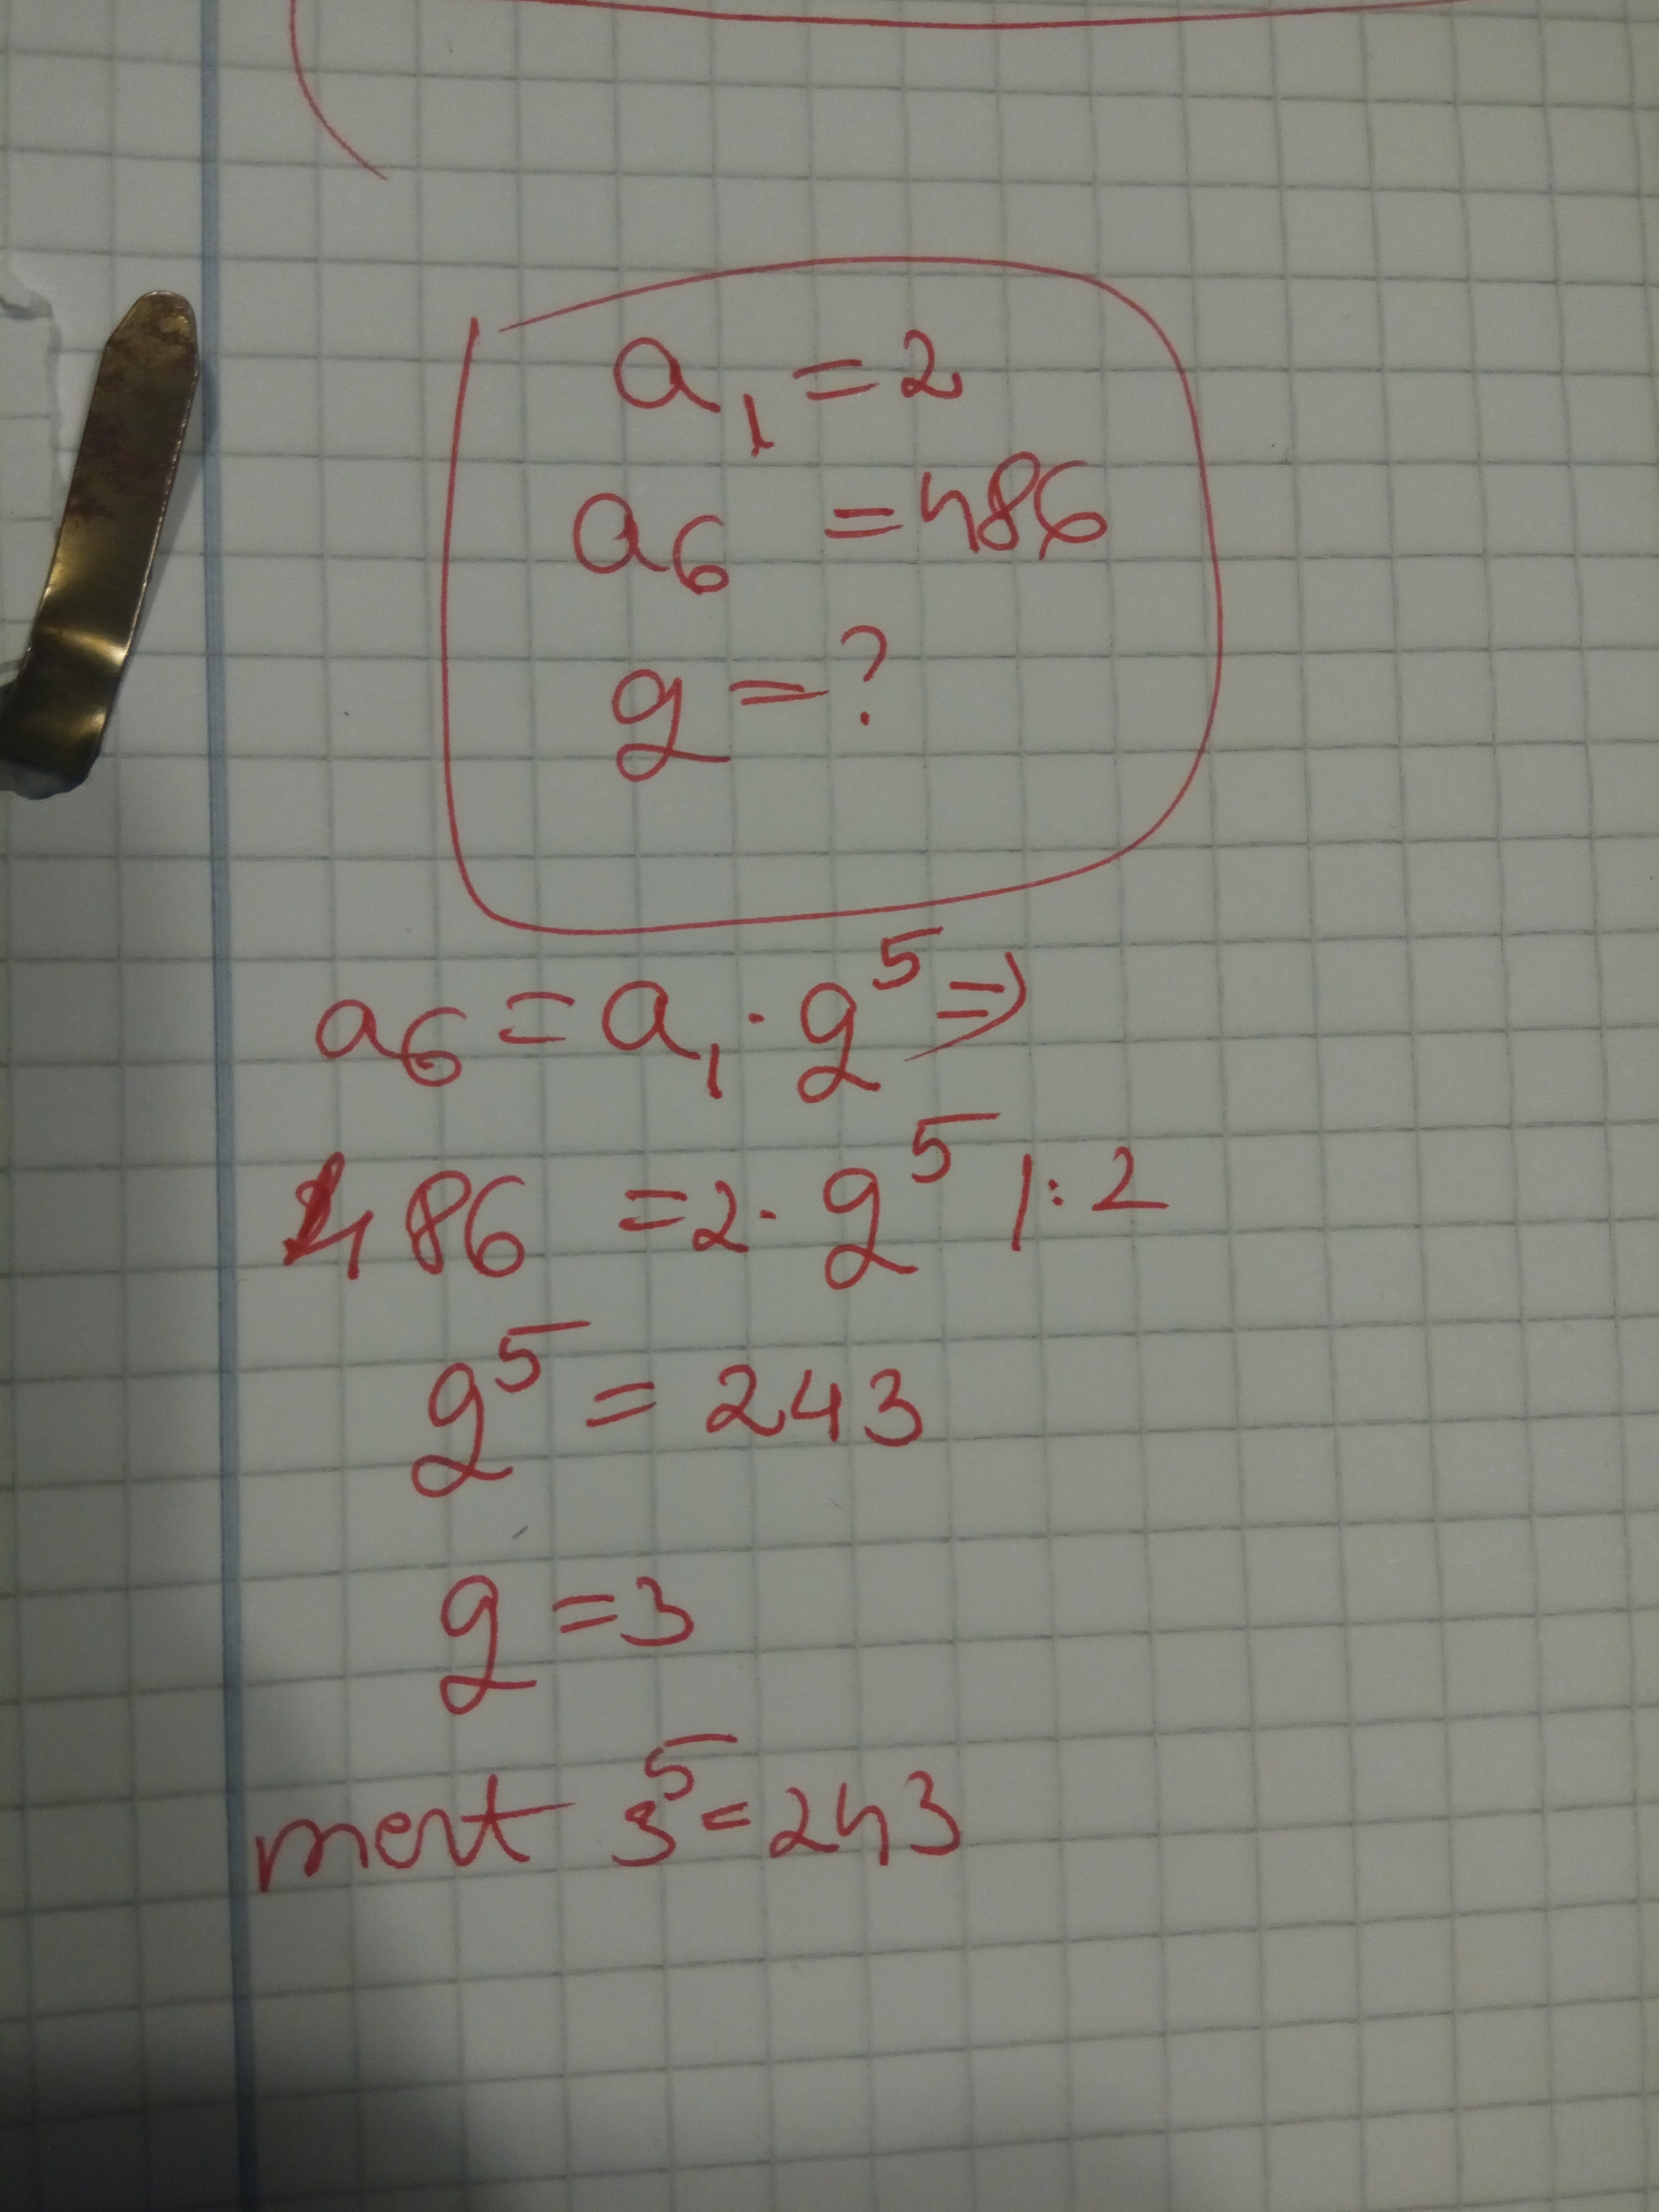 a₁ = 2
a₆ = 486
q = ?
a₆ = a₁ · q⁵ ⇒
486 = 2 · q⁵ /: 2
q⁵ = 243
q = 3
mert 3⁵ = 243